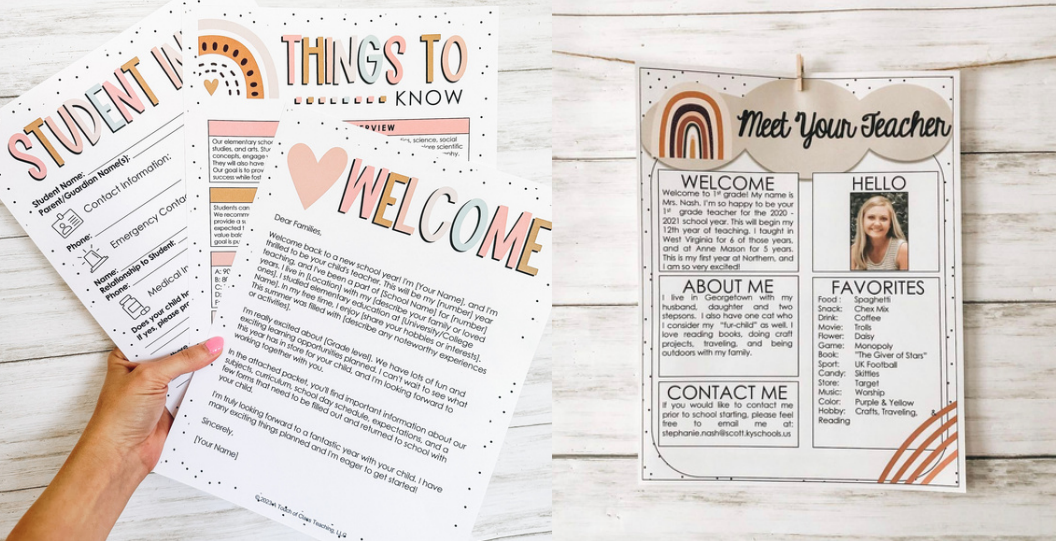 STUDENT IN
Student Name:
Parent/Guardian Name(s):
Contact Information:
Phone:
Emergency Contac
Name:
Relationship to Student:
Phone:
Medical In
Does your child h
If yes, please pr
THINGS TO
KNOW
ERVIEW
Our elementary scho
studies, and arts. Stu
concepts, engage
They will also have
Our goal is to prov
success while fos
cs, science, social
ore scientific
Students can
We recomm
provide a s
expected t
value bala
goal is pu
A: 90
B: 8
C:
WELCOME
Dear Families,
Welcome back to a new school year! I'm [Your Name], and I'm
thrilled to be your child's teacher. This will be my [number] year
teaching, and I've been a part of [School Name] for [number]
years. I live in [Location] with my [describe your family or loved
ones]. I studied elementary education at [University/College
Name]. In my free time, I enjoy [share your hobbies or interests].
This summer was filled with [describe any noteworthy experiences
or activities].
I'm really excited about [Grade level]. We have lots of fun and
exciting learning opportunities planned. I can't wait to see what
this year has in store for your child, and I'm looking forward to
working together with you.
In the attached packet, you'll find important information about our
subjects, curriculum, school day schedule, expectations, and a
few forms that need to be filled out and returned to school with
your child.
I'm truly looking forward to a fantastic year with your child. I have
many exciting things planned and I'm eager to get started!
Sincerely,
[Your Name]
© 2023 A Touch of Class Teaching, LLC
Meet Your Teacher
WELCOME
Welcome to 1st grade! My name is
Mrs. Nash. I'm so happy to be your
1st grade teacher for the 2020 -
2021 school year. This will begin my
12th year of teaching. I taught in
West Virginia for 6 of those years,
and at Anne Mason for 5 years.
This is my first year at Northern, and
I am so very excited!
ABOUT ME
I live in Georgetown with my
husband, daughter and two
stepsons. I also have one cat who
I consider my "fur-child" as well. I
love reading books, doing craft
projects, traveling, and being
outdoors with my family.
CONTACT ME
If you would like to contact me
prior to school starting, please feel
free to email me at:
stephanie.nash@scott.kyschools.us
HELLO
FAVORITES
Food: Spaghetti
Snack: Chex Mix
Drink: Coffee
Movie: Trolls
Flower: Daisy
Game: Monopoly
Book: "The Giver of Stars"
Sport: UK Football
Candy: Skittles
Store: Target
Music: Worship
Color: Purple & Yellow
Hobby: Crafts, Traveling, &
Reading